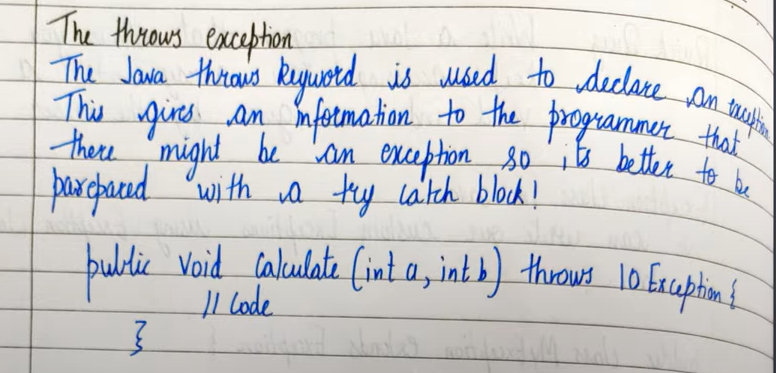 The throws exception
The Java throws keyword is used to declare an exception
This gives an information to the programmer that
there might be an exception so its better to be
parepared with a try catch block!
public void calculate (int a, int b) throws IO Exception {
// code
}